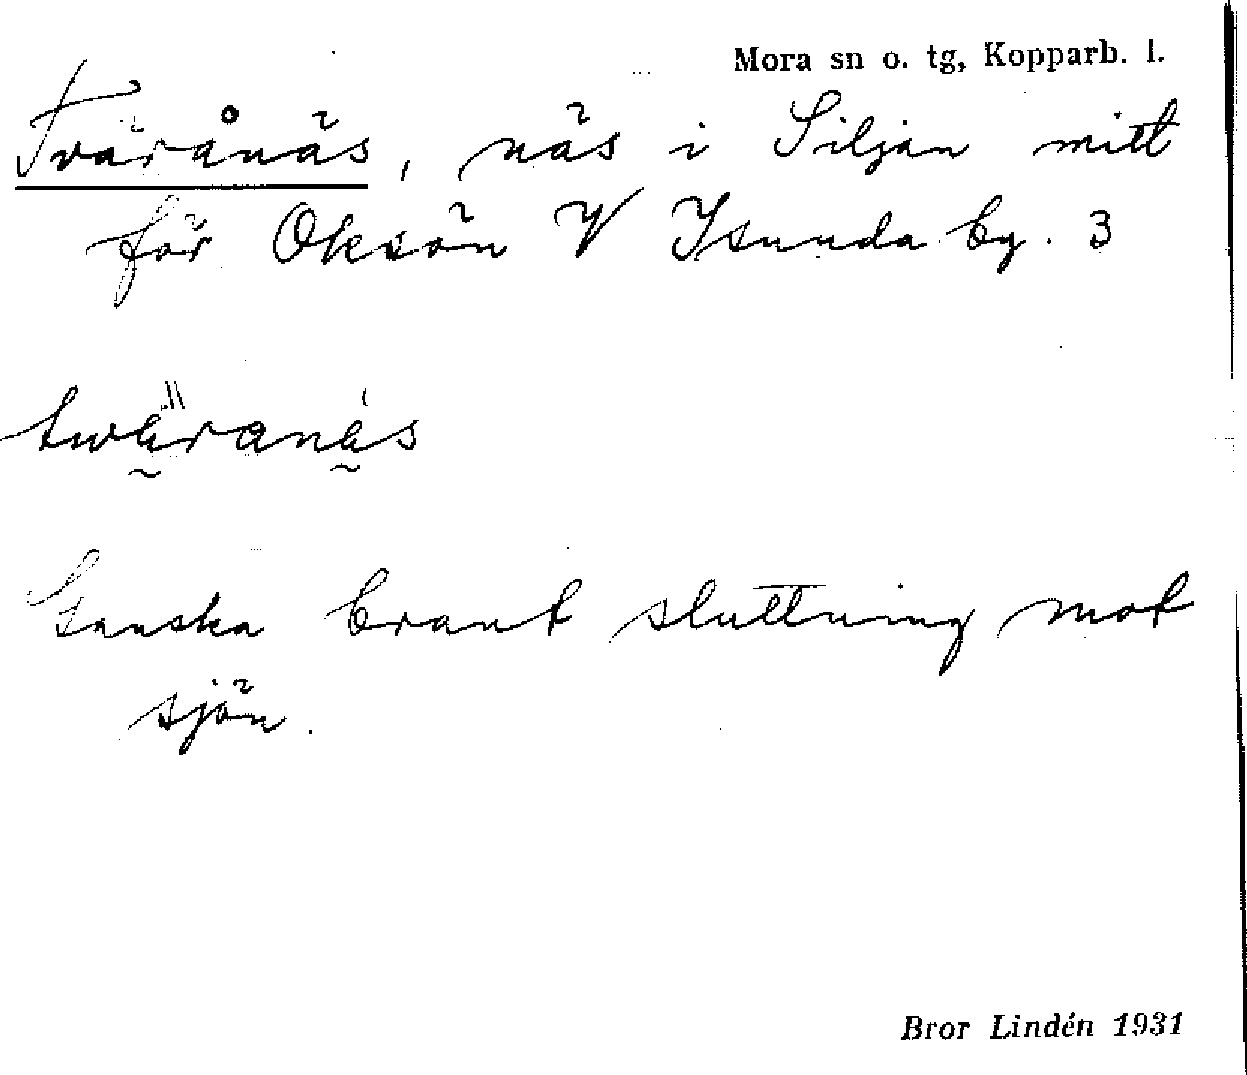 Mora sn o. tg, Kopparb. l.
Tvärånäs, näs i Siljan mitt
för Oksön V Isunda by. 3
twäranäs
Ganska brant sluttning mot
sjön.
Bror Lindén 1931